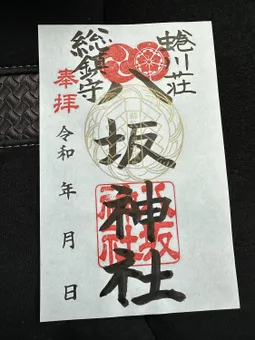 蜷川荘
総鎮守
八坂神社
奉拝
令和 年 月 日
八坂神社